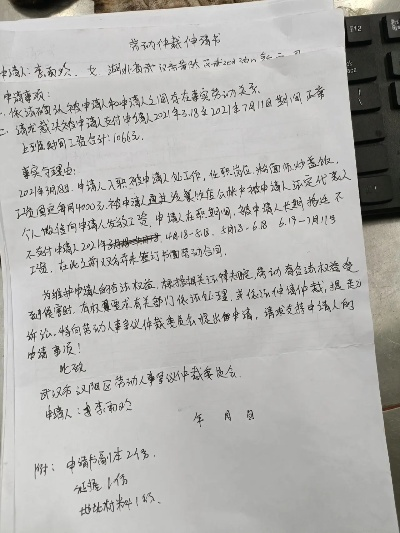 劳动仲裁申请书
申请人：李雨玲，女，湖北省武汉市黄陂
申请事项：
一、依法确认被申请人和申请人之间存在事实劳动关系。
二、请求裁决被申请人支付申请人2021年3.18至2021年7月11日期间正常
上班期间工资合计：1066元。
事实与理由：
2021年3月18日，申请人入职被申请人处工作，任职岗位，炒盖饭，
工资固定每月4000元，被申请人法定代表人
个人微信向申请人发放工资，申请人在职期间，被申请人长期拖延不
不支付申请人2021年 4月18-5.18、5月18-6.18 6.19-7月11号
工资。在此之前双方并未签订书面劳动合同。
为维护申请人的合法权益，根据相关法律规定，劳动者合法权益受
到侵害时，有权要求有关部门依法处理，或依法申请仲裁，提起
诉讼。特向劳动人事争议仲裁委员会提出申请，请求支持申请人的
申请事项！
此致
武汉市汉阳区劳动人事争议仲裁委员会
申请人：李雨玲
年 月 日
附：申请书副本2份。
证据1份
材料1份、
F12